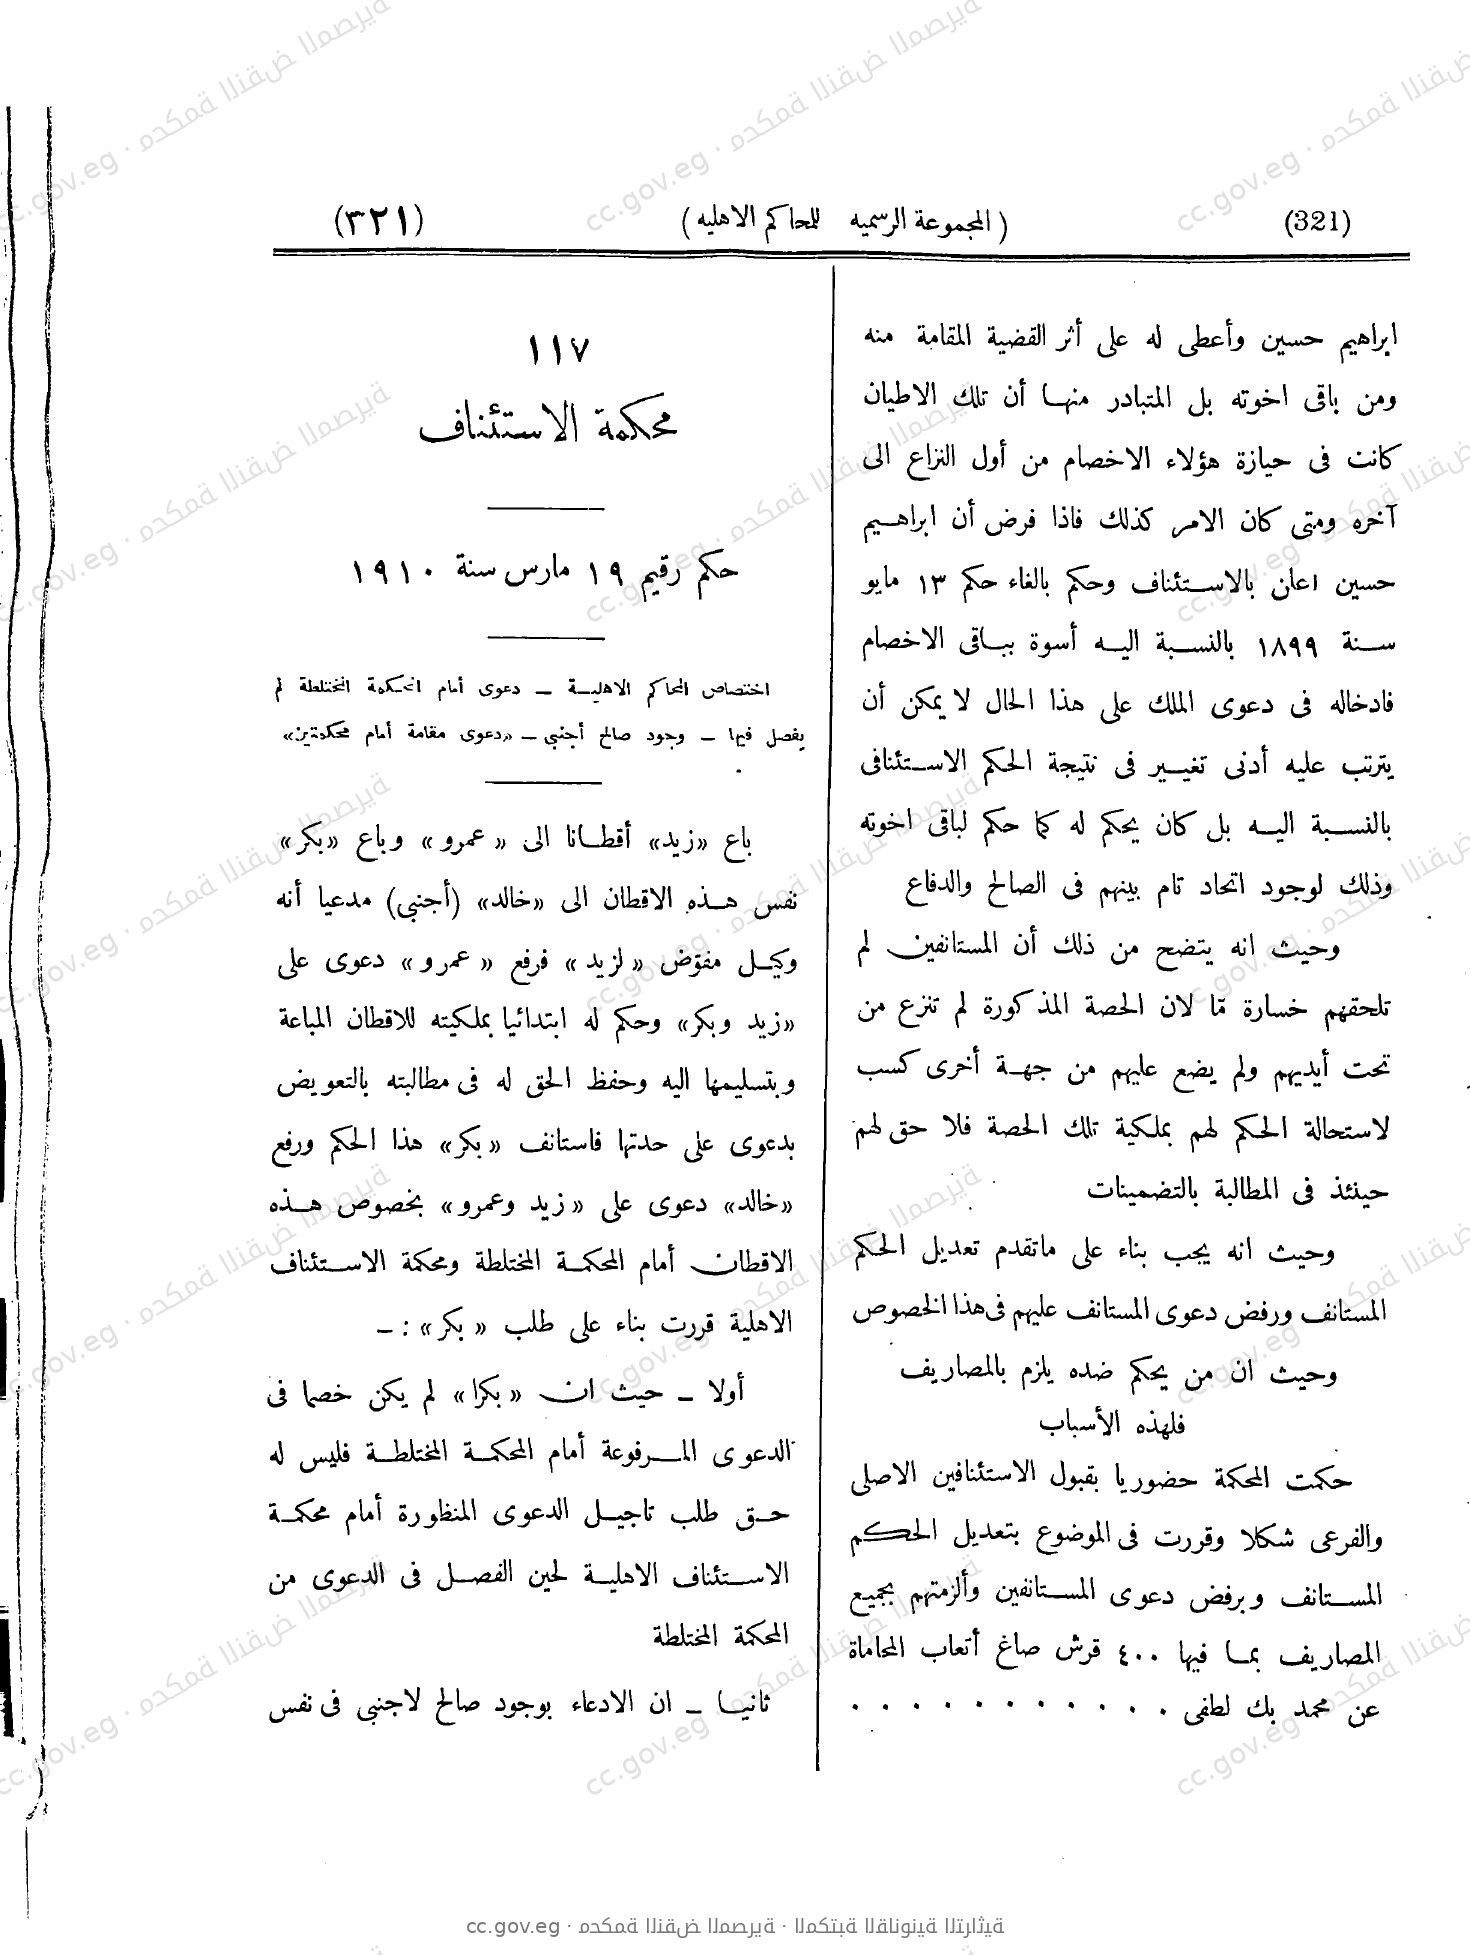 (321) ( المجموعة الرسميه للمحاكم الاهليه ) (٣٢١)
ابراهيم حسين وأعطى له على أثر القضية المقامة منه
ومن باقى اخوته بل المتبادر منها أن تلك الاطيان
كانت فى حيازة هؤلاء الاخصام من أول النزاع الى
آخره ومتى كان الامر كذلك فاذا فرض أن ابراهيم
حسين اعلن بالاستئناف وحكم بالغاء حكم ١٣ مايو
سنة ١٨٩٩ بالنسبة اليه أسوة بباقى الاخصام
فادخاله فى دعوى الملك على هذا الحال لا يمكن أن
يترتب عليه أدنى تغيير فى نتيجة الحكم الاستئنافى
بالنسبة اليه بل كان يحكم له كما حكم لباقى اخوته
وذلك لوجود اتحاد تام بينهم فى الصالح والدفاع
وحيث انه يتضح من ذلك أن المستانفين لم
تلحقهم خسارة مّا لان الحصة المذكورة لم تنزع من
تحت أيديهم ولم يضع عليهم من جهة أخرى كسب
لاستحالة الحكم لهم بملكية تلك الحصة فلا حق لهم
حينئذ فى المطالبة بالتضمينات
وحيث انه يجب بناء على ماتقدم تعديل الحكم
المستانف ورفض دعوى المستانف عليهم فى هذا الخصوص
وحيث ان من يحكم ضده يلزم بالمصاريف
فلهذه الأسباب
حكمت المحكمة حضوريا بقبول الاستئنافين الاصلى
والفرعى شكلا وقررت فى الموضوع بتعديل الحكم
المستانف وبرفض دعوى المستانفين وألزمتهم بجميع
المصاريف بما فيها ٤٠٠ قرش صاغ أتعاب المحاماة
عن محمد بك لطفى . . . . . . . . . . .
١١٧
محكمة الاستئناف
حكم رقيم ١٩ مارس سنة ١٩١٠
اختصاص المحاكم الاهلية – دعوى أمام المحكمة المختلطة لم
يفصل فيها – وجود صالح أجنبى – «دعوى مقامة أمام محكمتين»
باع «زيد» أقطانا الى «عمرو» وباع «بكر»
نفس هذه الاقطان الى «خالد» (أجنبى) مدعيا أنه
وكيل مفوّض «لزيد» فرفع «عمرو» دعوى على
«زيد وبكر» وحكم له ابتدائيا بملكيته للاقطان المباعة
وبتسليمها اليه وحفظ الحق له فى مطالبته بالتعويض
بدعوى على حدتها فاستانف «بكر» هذا الحكم ورفع
«خالد» دعوى على «زيد وعمرو» بخصوص هذه
الاقطان أمام المحكمة المختلطة ومحكمة الاستئناف
الاهلية قررت بناء على طلب «بكر» : –
أولا – حيث ان «بكرا» لم يكن خصما فى
الدعوى المرفوعة أمام المحكمة المختلطة فليس له
حق طلب تاجيل الدعوى المنظورة أمام محكمة
الاستئناف الاهلية لحين الفصل فى الدعوى من
المحكمة المختلطة
ثانيا – ان الادعاء بوجود صالح لاجنبى فى نفس
cc.gov.eg · محكمة النقض المصرية · المكتبة القانونية التراثية